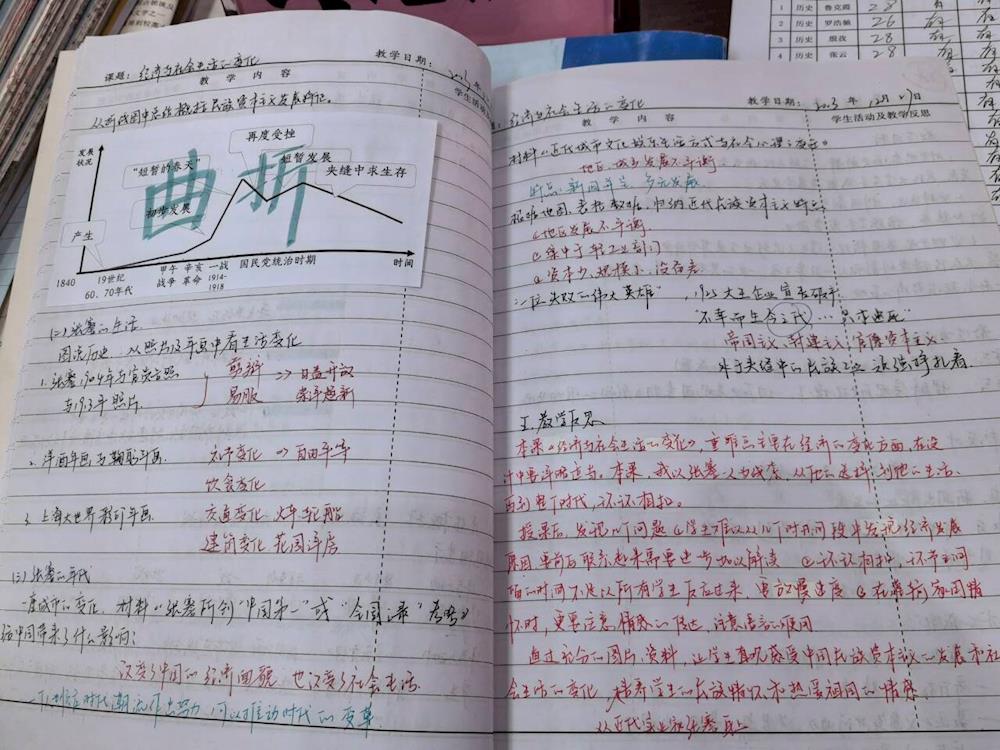 课题：经济与社会生活的变化 教学日期：
教学内容
学生活动
从曲线图中总结概括民族资本主义发展特征。
发展状况
再度受挫
“短暂的春天”
短暂发展
夹缝中求生存
曲折
初步发展
产生
1840
19世纪60、70年代
甲午战争
辛亥革命
一战1914-1918
国民党统治时期
时间
(二)张謇的生活
图说历史：从照片及年画中看生活变化
1.张謇1904年与官员合照
与1913年照片
剪辫
易服
日益开放
崇洋趋新
2.洋酒年画与
变化 => 自由平等
饮食变化
3.上海大世界彩印年画
交通变化 火车 轮船
建筑变化 花园洋房
(三)张謇的年代
一座城市的变化，材料：张謇所创“中国第一”或“全国之最”
给中国带来了什么影响：
改变了中国的经济面貌 也改变了社会生活.
时代潮流作出努力，可以推动时代的变革
经济与社会生活的变化 教学日期：2023年12月7日
教学内容
学生活动及教学反思
材料：近代城市文化娱乐生活方式与社会心理之变迁。
地区、城乡发展不平衡
特点：新旧并呈 多元发展
根据地图、表格数据，归纳近代民族资本主义特点
地区发展不平衡
集中于轻工业部门
资本少、规模小、没有
“一位失败的伟大英雄”
1925 大生企业宣告破产
“不幸而生今之代…
帝国主义、封建主义、官僚资本主义.
处于夹缝中的民族工业 顽强挣扎着.
五.教学反思
本课《经济与社会生活的变化》，重难点主要在经济的变化方面，在设
计中要详略适当，本课，我以张謇人为线索，从他的选择，到他的生活、
再到他的时代，环环相扣。
授课后，发现的个问题 ①学生难以从几个时间段中发现经济发展
原因，要前后联系起来需要进一步加以解读 ②环环相扣，环节之间
留的时间不足以所有学生反应过来，要放慢速度 ③在最后家国情
怀时，更要注意情感的传达，注意语言的使用
通过充分的图片、资料，让学生直观感受中国民族资本主义的发展和社
会生活的变化，培养学生的民族情怀和热爱祖国的情感
从近代实业家张謇身上
1 历史 鲁克霞 28 有
2 历史 罗浩毓 26 有
3 历史 28 有
4 历史 张云 28 有